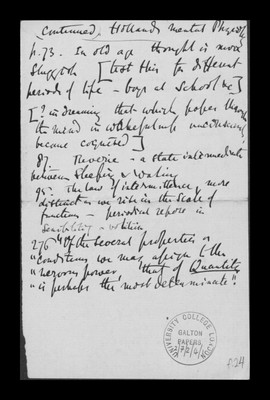 (continued) Holland's mental Physiol
p. 73. In old age thought is more
sluggish [test this for different
periods of life – boys at school &c]
[? in dreaming that which passes through
the mind in wakefulness unconsciously
became cognised]
87 – Reverie – a state intermediate
between sleeping & waking
95 – The law of intermittence, more
distinct as we rise in the scale of
functions – periodical repose in
sensibility & volition
276 "Of the several properties or
"conditions we may assign to this
"nervous power, that of Quantity
"is perhaps the most determinate".
UNIVERSITY COLLEGE LONDON
GALTON
PAPERS
p24